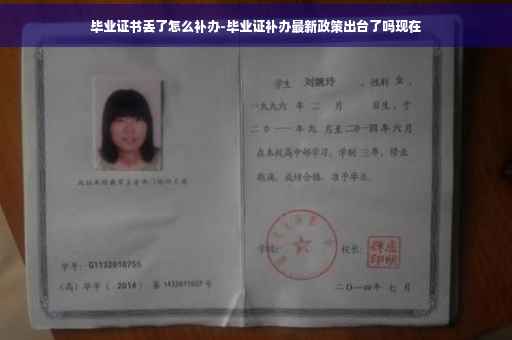 毕业证书丢了怎么补办-毕业证补办最新政策出台了吗现在
学生 刘婉玲 ，性别 女 ，
一九九六 年 二 月 日生，于
二〇一一 年 九 月至 二〇一四 年 六 月
在本校高中部学习，学制 三 年，修业
期满，成绩合格，准予毕业。
学号： G1132010755
（高）毕字（ 2014 ）第 1432011027 号
学校：
校长：
二〇一四年 七 月